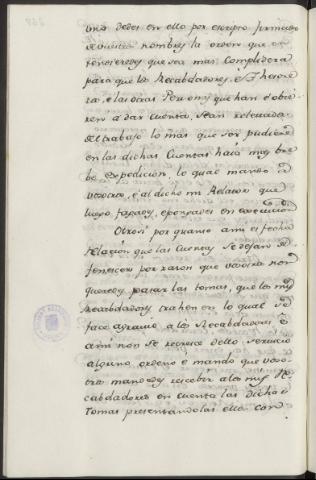 uno dedes en ello por escripto firmado
de vuestros nombres la orden que en
tendieredes que sea mas complidera
para que los Recabdadores, e Thesore
ros, e las otras Personas que han de obie
ren a dar cuenta, sean relevados
del trabajo lo mas que ser pudiere
en las dichas Cuentas haia muy bre
be expedicion, lo qual mando a
vosotros, e al dicho mi Relator que
luego fagades, e pongades en execucion
Otrosi por quanto a mi es fecha
relacion que las Cuentas se dejan de
fenescer por razon que vosotros non
queredes pasar las tomas, que los mis
Recabdadores trahen en lo qual se
face agravio a los Recabdadores e
a mi non se recresce dello servicio
alguno, ordeno e mando que voso
tros mandedes rescebir a los mis Re
cabdadores en cuenta las dichas
Tomas presentandolas ellos con